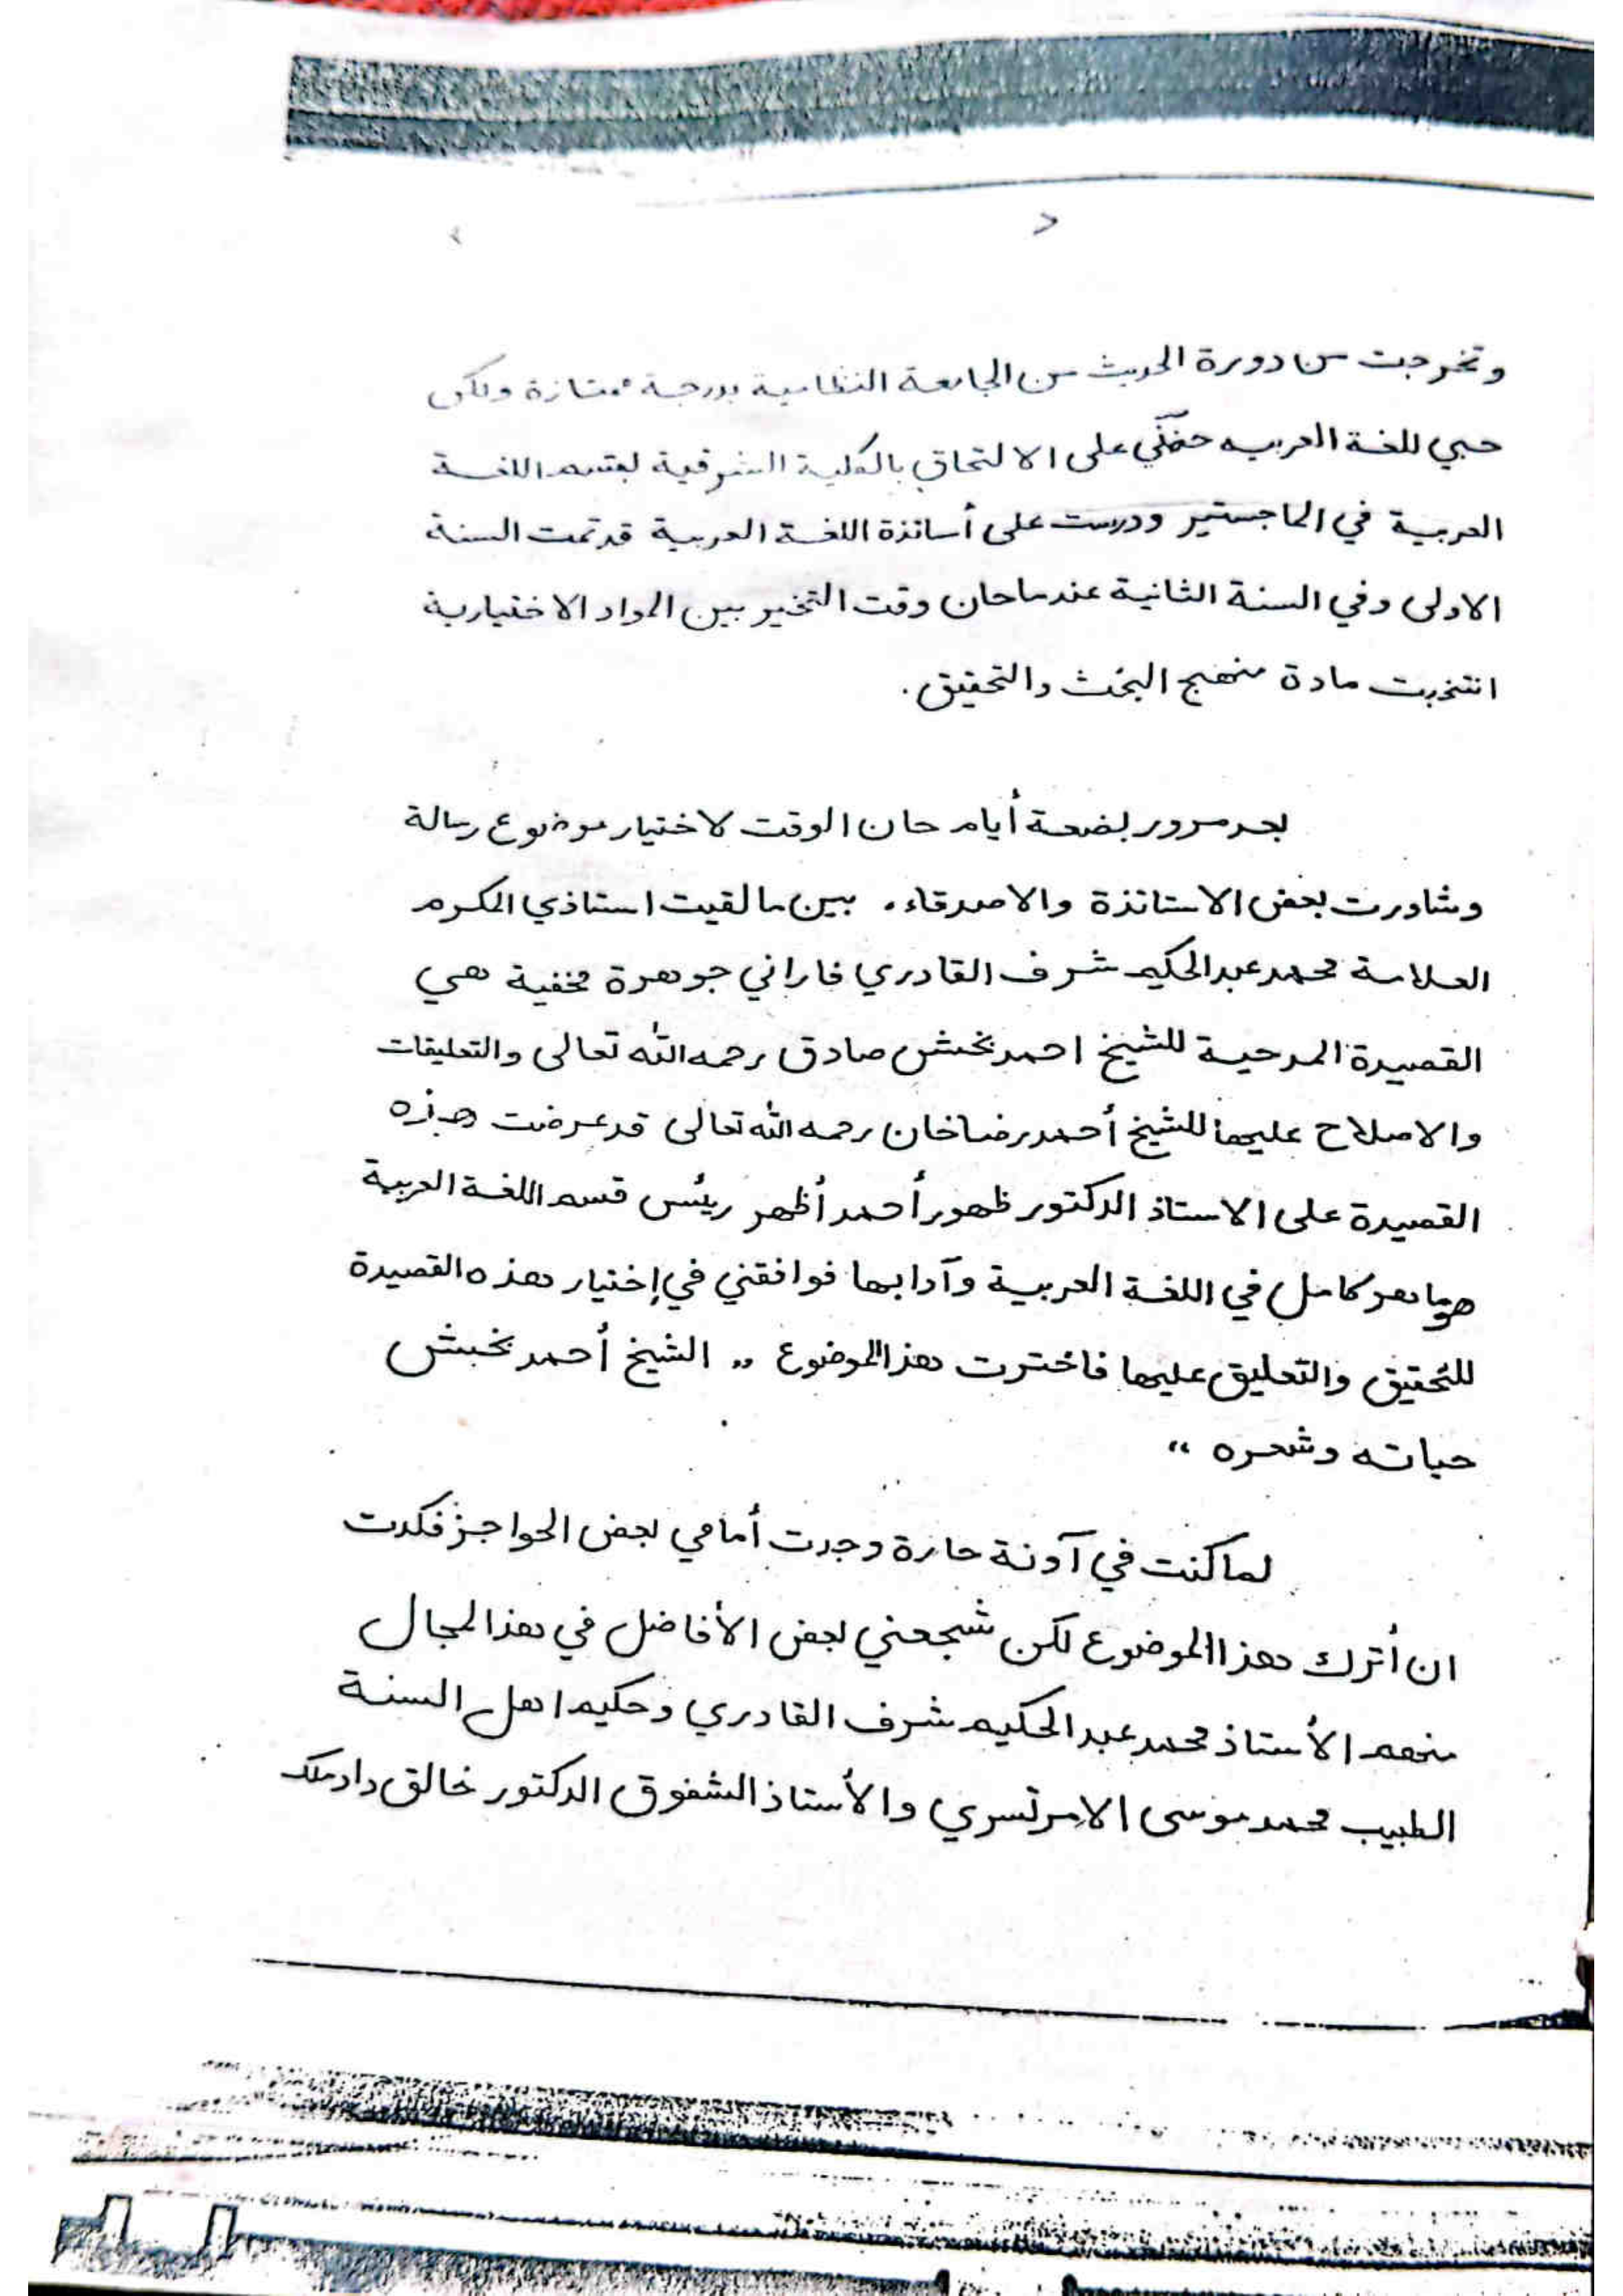 وتخرجت من دورة الحديث من الجامعة النظامية بدرجة ممتازة ولكن
حبي للغة العربيه حضّني على الالتحاق بالكلية الشرقية لقسم اللغة
العربية في الماجستير ودرست على أساتذة اللغة العربية قد تمت السنة
الاولى وفي السنة الثانية عندما حان وقت التخير بين المواد الاختيارية
انتخبت مادة منهج البحث والتحقيق.
بعد مرور بضعة أيام حان الوقت لاختيار موضوع رسالة
وشاورت بعض الاساتذة والاصدقاء. بين ما لقيت استاذي المكرم
العلامة محمد عبدالحكيم شرف القادري فاراني جوهرة مخفية هي
القصيدة المدحية للشيخ احمد بخش صادق رحمه الله تعالى والتعليقات
والاصلاح عليها للشيخ أحمد رضا خان رحمه الله تعالى قد عرضت هذه
القصيدة على الاستاذ الدكتور ظهور أحمد أظهر رئيس قسم اللغة العربية
هو ماهر كامل في اللغة العربية وآدابها فوافقني في إختيار هذه القصيدة
للتحقيق والتعليق عليها فاخترت هذا الموضوع ,, الشيخ أحمد بخش
حياته وشعره ،،
لما كنت في آونة حارة وجدت أمامي بعض الحواجز فكدت
ان أترك هذا الموضوع لكن شجعني بعض الأفاضل في هذا المجال
منهم الأستاذ محمد عبد الحكيم شرف القادري وحكيم اهل السنة
الطبيب محمد موسى الامرتسري والأستاذ الشفوق الدكتور خالق داد ملك